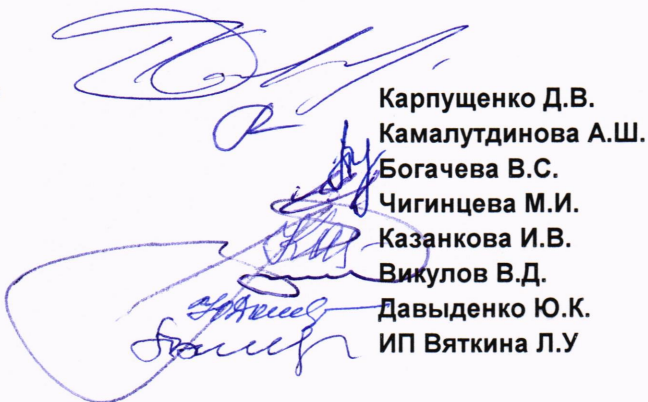 Карпущенко Д.В.
Камалутдинова А.Ш.
Богачева В.С.
Чигинцева М.И.
Казанкова И.В.
Викулов В.Д.
Давыденко Ю.К.
ИП Вяткина Л.У